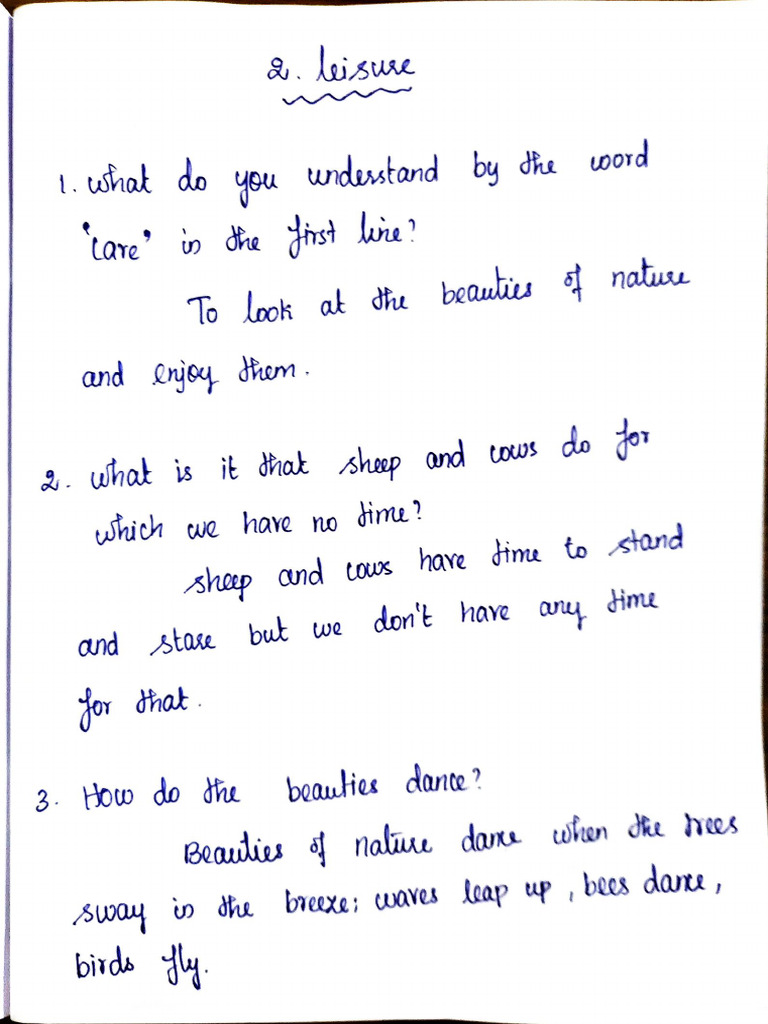 2. leisure
1. what do you understand by the word
"care" in the first line?
To look at the beauties of nature
and enjoy them.
2. what is it that sheep and cows do for
which we have no time?
sheep and cows have time to stand
and stare but we don't have any time
for that.
3. How do the beauties dance?
Beauties of nature dance when the trees
sway in the breeze; waves leap up, bees dance,
birds fly.